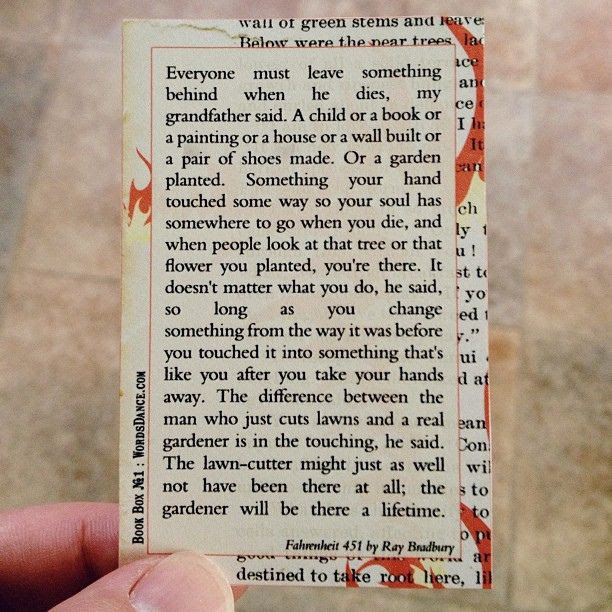 wall of green stems and leave
Below were the near trees, lac
Everyone must leave something
behind when he dies, my
grandfather said. A child or a book or
a painting or a house or a wall built or
a pair of shoes made. Or a garden
planted. Something your hand
touched some way so your soul has
somewhere to go when you die, and
when people look at that tree or that
flower you planted, you're there. It
doesn't matter what you do, he said,
so long as you change
something from the way it was before
you touched it into something that's
like you after you take your hands
away. The difference between the
man who just cuts lawns and a real
gardener is in the touching, he said.
The lawn-cutter might just as well
not have been there at all; the
gardener will be there a lifetime.
Fahrenheit 451 by Ray Bradbury
Book Box №1 : WordsDance.com
destined to take root here, li